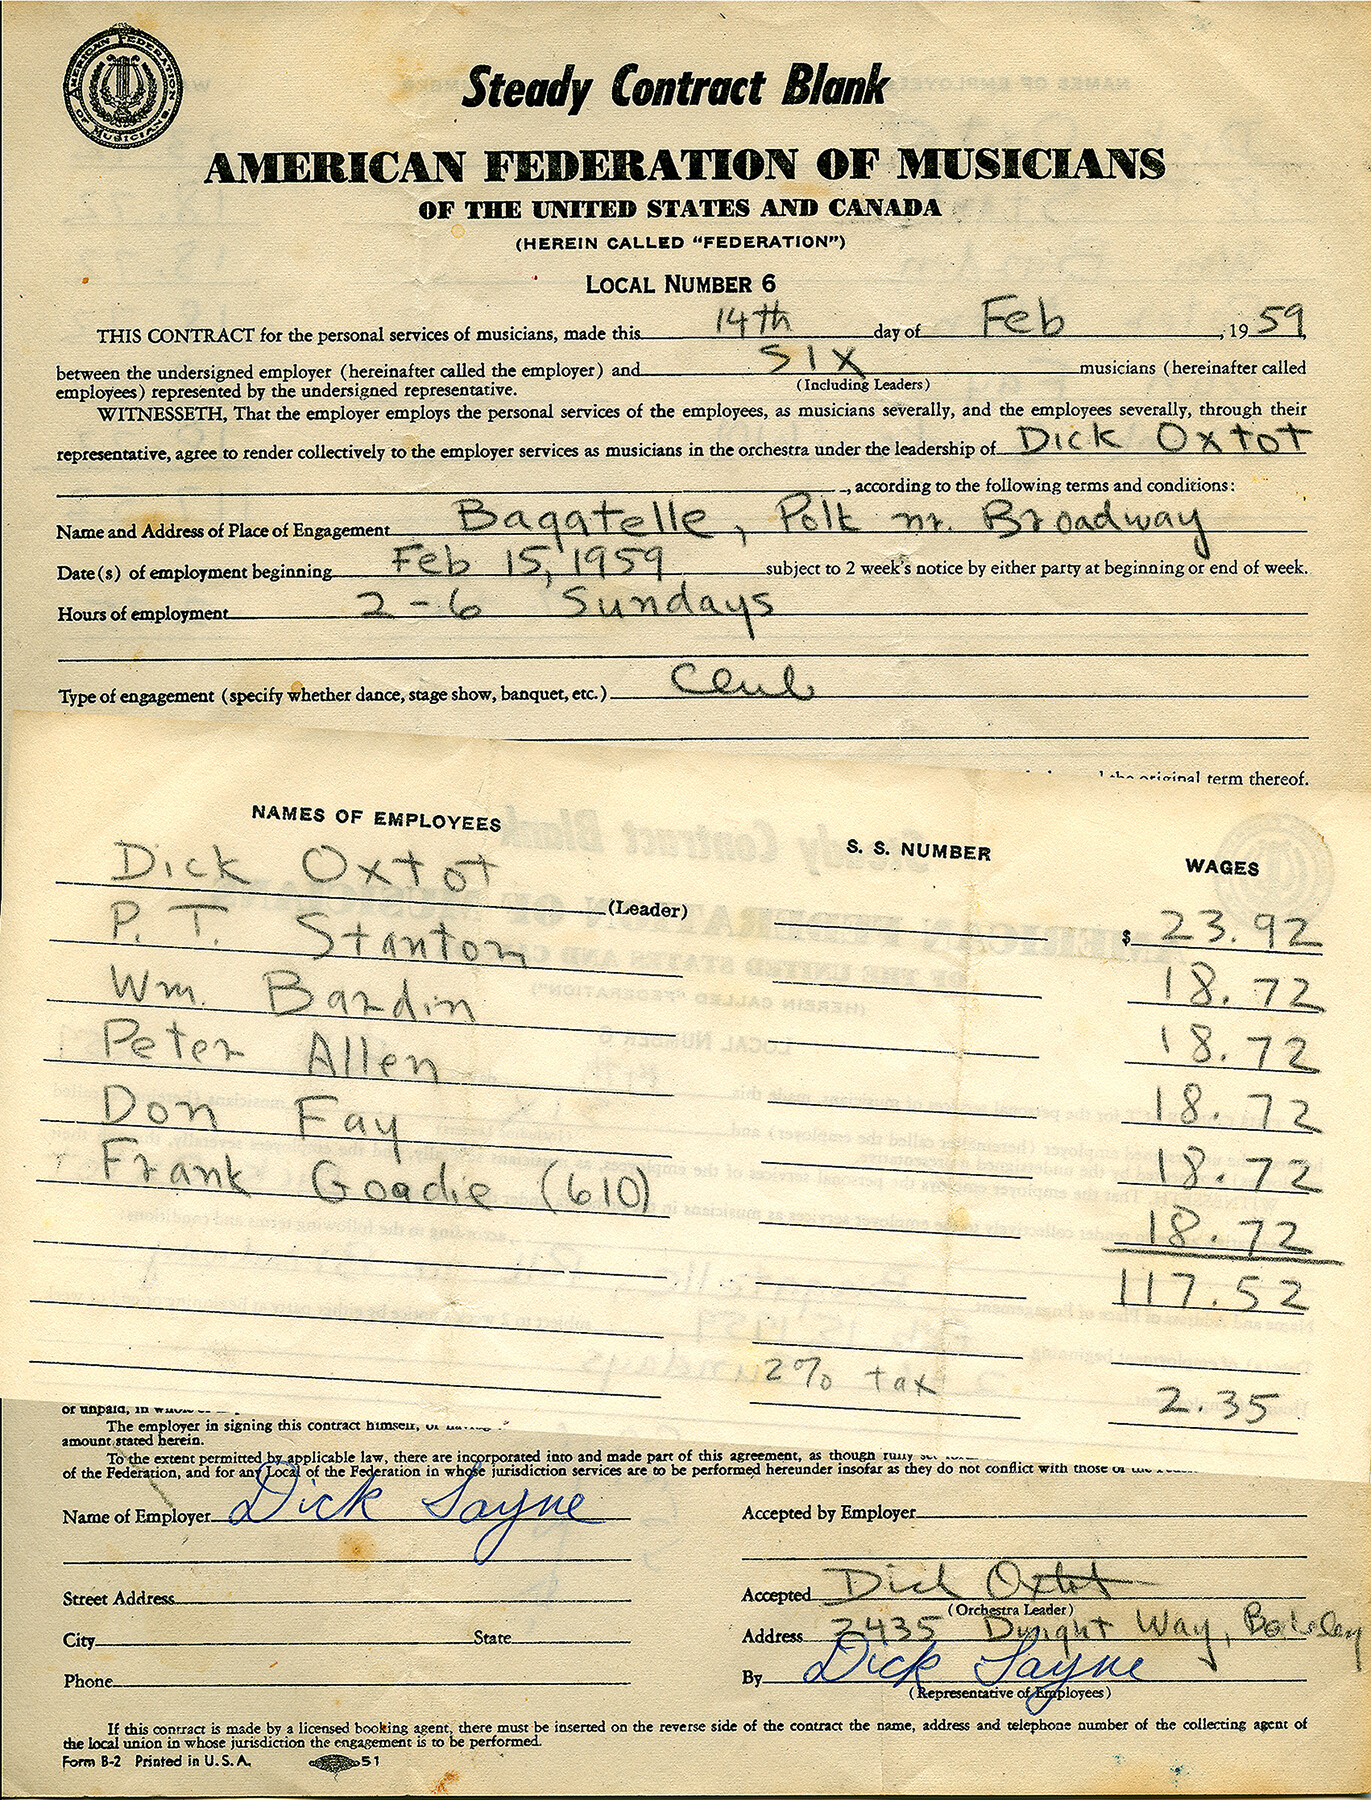 AMERICAN FEDERATION OF MUSICIANS.
Steady Contract Blank
AMERICAN FEDERATION OF MUSICIANS
OF THE UNITED STATES AND CANADA
(HEREIN CALLED "FEDERATION")
LOCAL NUMBER 6
THIS CONTRACT for the personal services of musicians, made this 14th day of Feb, 19 59,
between the undersigned employer (hereinafter called the employer) and SIX musicians (hereinafter called
(Including Leaders)
employees) represented by the undersigned representative.
WITNESSETH, That the employer employs the personal services of the employees, as musicians severally, and the employees severally, through their
representative, agree to render collectively to the employer services as musicians in the orchestra under the leadership of Dick Oxtot
, according to the following terms and conditions:
Name and Address of Place of Engagement Bagatelle, Polk nr. Broadway
Date(s) of employment beginning Feb 15, 1959 subject to 2 week's notice by either party at beginning or end of week.
Hours of employment 2-6 Sundays
Type of engagement (specify whether dance, stage show, banquet, etc.) Club
the original term thereof.
NAMES OF EMPLOYEES S. S. NUMBER WAGES
Dick Oxtot (Leader) $ 23.92
P. T. Stanton 18.72
Wm. Bardin 18.72
Peter Allen 18.72
Don Fay 18.72
Frank Goodie (610) 18.72
117.52
2% tax 2.35
or unpaid, in
The employer in signing this contract himself, or
amount stated herein.
To the extent permitted by applicable law, there are incorporated into and made part of this agreement, as though fully
of the Federation, and for any Local of the Federation in whose jurisdiction services are to be performed hereunder insofar as they do not conflict with those of the
Name of Employer Dick Layne Accepted by Employer
Street Address Accepted Dick Oxtot
(Orchestra Leader)
City State Address 2435 Dwight Way, Berkeley
Phone By Dick Layne
(Representative of Employees)
If this contract is made by a licensed booking agent, there must be inserted on the reverse side of the contract the name, address and telephone number of the collecting agent of
the local union in whose jurisdiction the engagement is to be performed.
Form B-2 Printed in U.S.A. 51